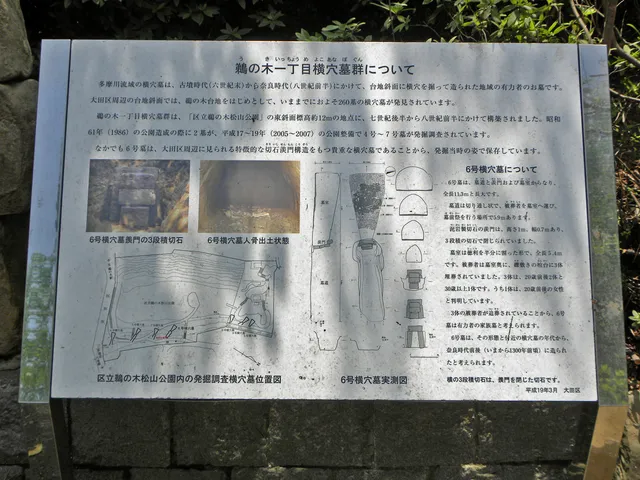 鵜の木一丁目横穴墓群について
多摩川流域の横穴墓は、古墳時代(六世紀末)から奈良時代(八世紀前半)にかけて、台地斜面に横穴を掘って造られた地域の有力者のお墓です。
大田区周辺の台地斜面では、鵜の木台地をはじめとして、いままでにおよそ260基の横穴墓が発見されています。
鵜の木一丁目横穴墓群は、「区立鵜の木松山公園」の東斜面標高約12mの地点に、七世紀後半から八世紀前半にかけて構築されました。昭和
61年(1986)の公園造成の際に2基が、平成17〜19年(2005〜2007)の公園整備で4号〜7号墓が発掘調査されています。
なかでも6号墓は、大田区周辺に見られる特徴的な切石羨門構造をもつ貴重な横穴墓であることから、発掘当時の姿で保存しています。
6号横穴墓羨門の3段積切石
6号横穴墓人骨出土状態
区立鵜の木松山公園内の発掘調査横穴墓位置図
6号横穴墓実測図
6号横穴墓について
6号墓は、墓道と羨門および墓室からなり、
全長11.3mと長大です。
墓道は切り通し状で、被葬者を墓室へ運び、
墓前祭を行う場所で5.9mあります。
泥岩製切石の羨門は、高さ1m、幅0.7mあり、
3段積の切石で閉じられていました。
墓室は徳利を半分に割った形で、全長5.4m
です。被葬者は墓室奥に、礫敷きの棺台に3体
埋葬されていました。3体は、20歳前後2体と
30歳以上1体です。うち1体は、20歳前後の女性
と判明しています。
3体の被葬者が追葬されていることから、6号
墓は有力者の家族墓と考えられます。
6号墓は、その形態と付近の横穴墓の年代から、
奈良時代前後(いまから1300年前頃)に造られ
たと考えられます。
横の3段積切石は、羨門を閉じた切石です。
平成19年3月 大田区